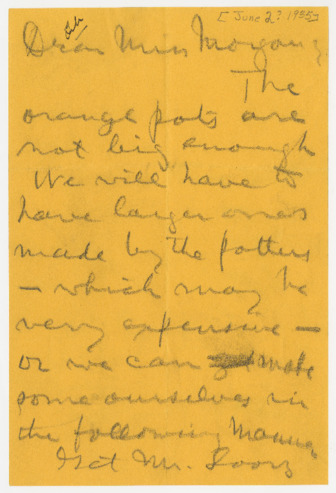 [June 2? 1935]
Dear Miss Morgan,
The
orange pots are
not big enough
We will have to
have larger ones
made by the potters
– which may be
very expensive –
or we can make
some ourselves in
the following manner
Get Mr.